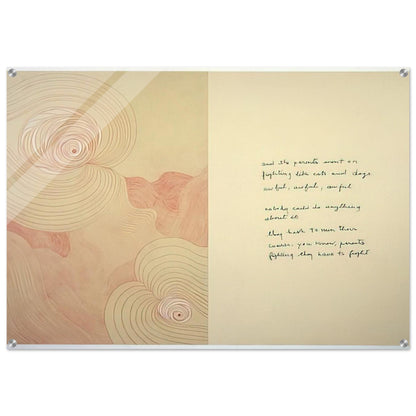 and the parents went on
fighting like cats and dogs
awful, awful, awful
nobody could do anything
about it
they have to run their
course, you know, parents
fighting they have to fight